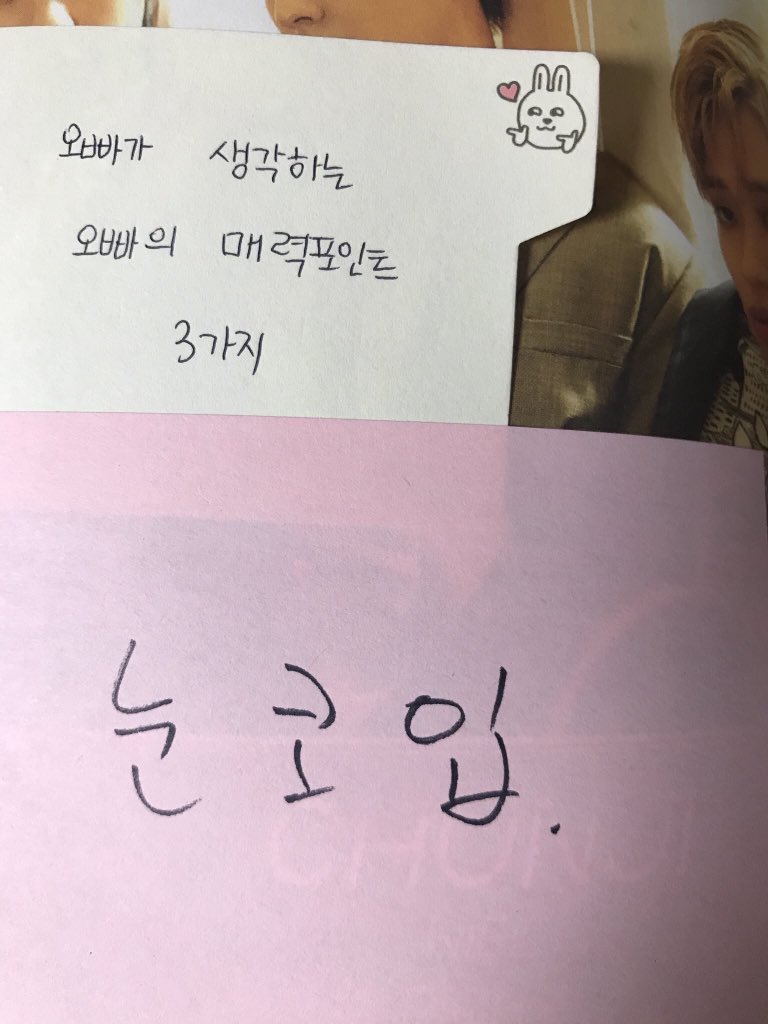 오빠가 생각하는
오빠의 매력포인트
3가지
눈 코 입.
CHUNJI